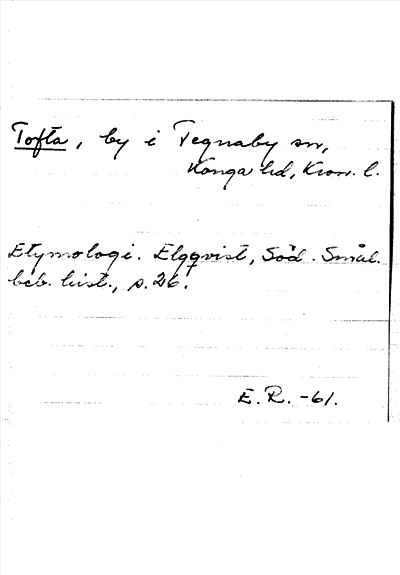 Tofta, by i Tegnaby sn,
Konga hd, Kron. l.
Etymologi. Elgqvist, Söd. Smål.
beb. hist., s. 26.
E. R. -61.